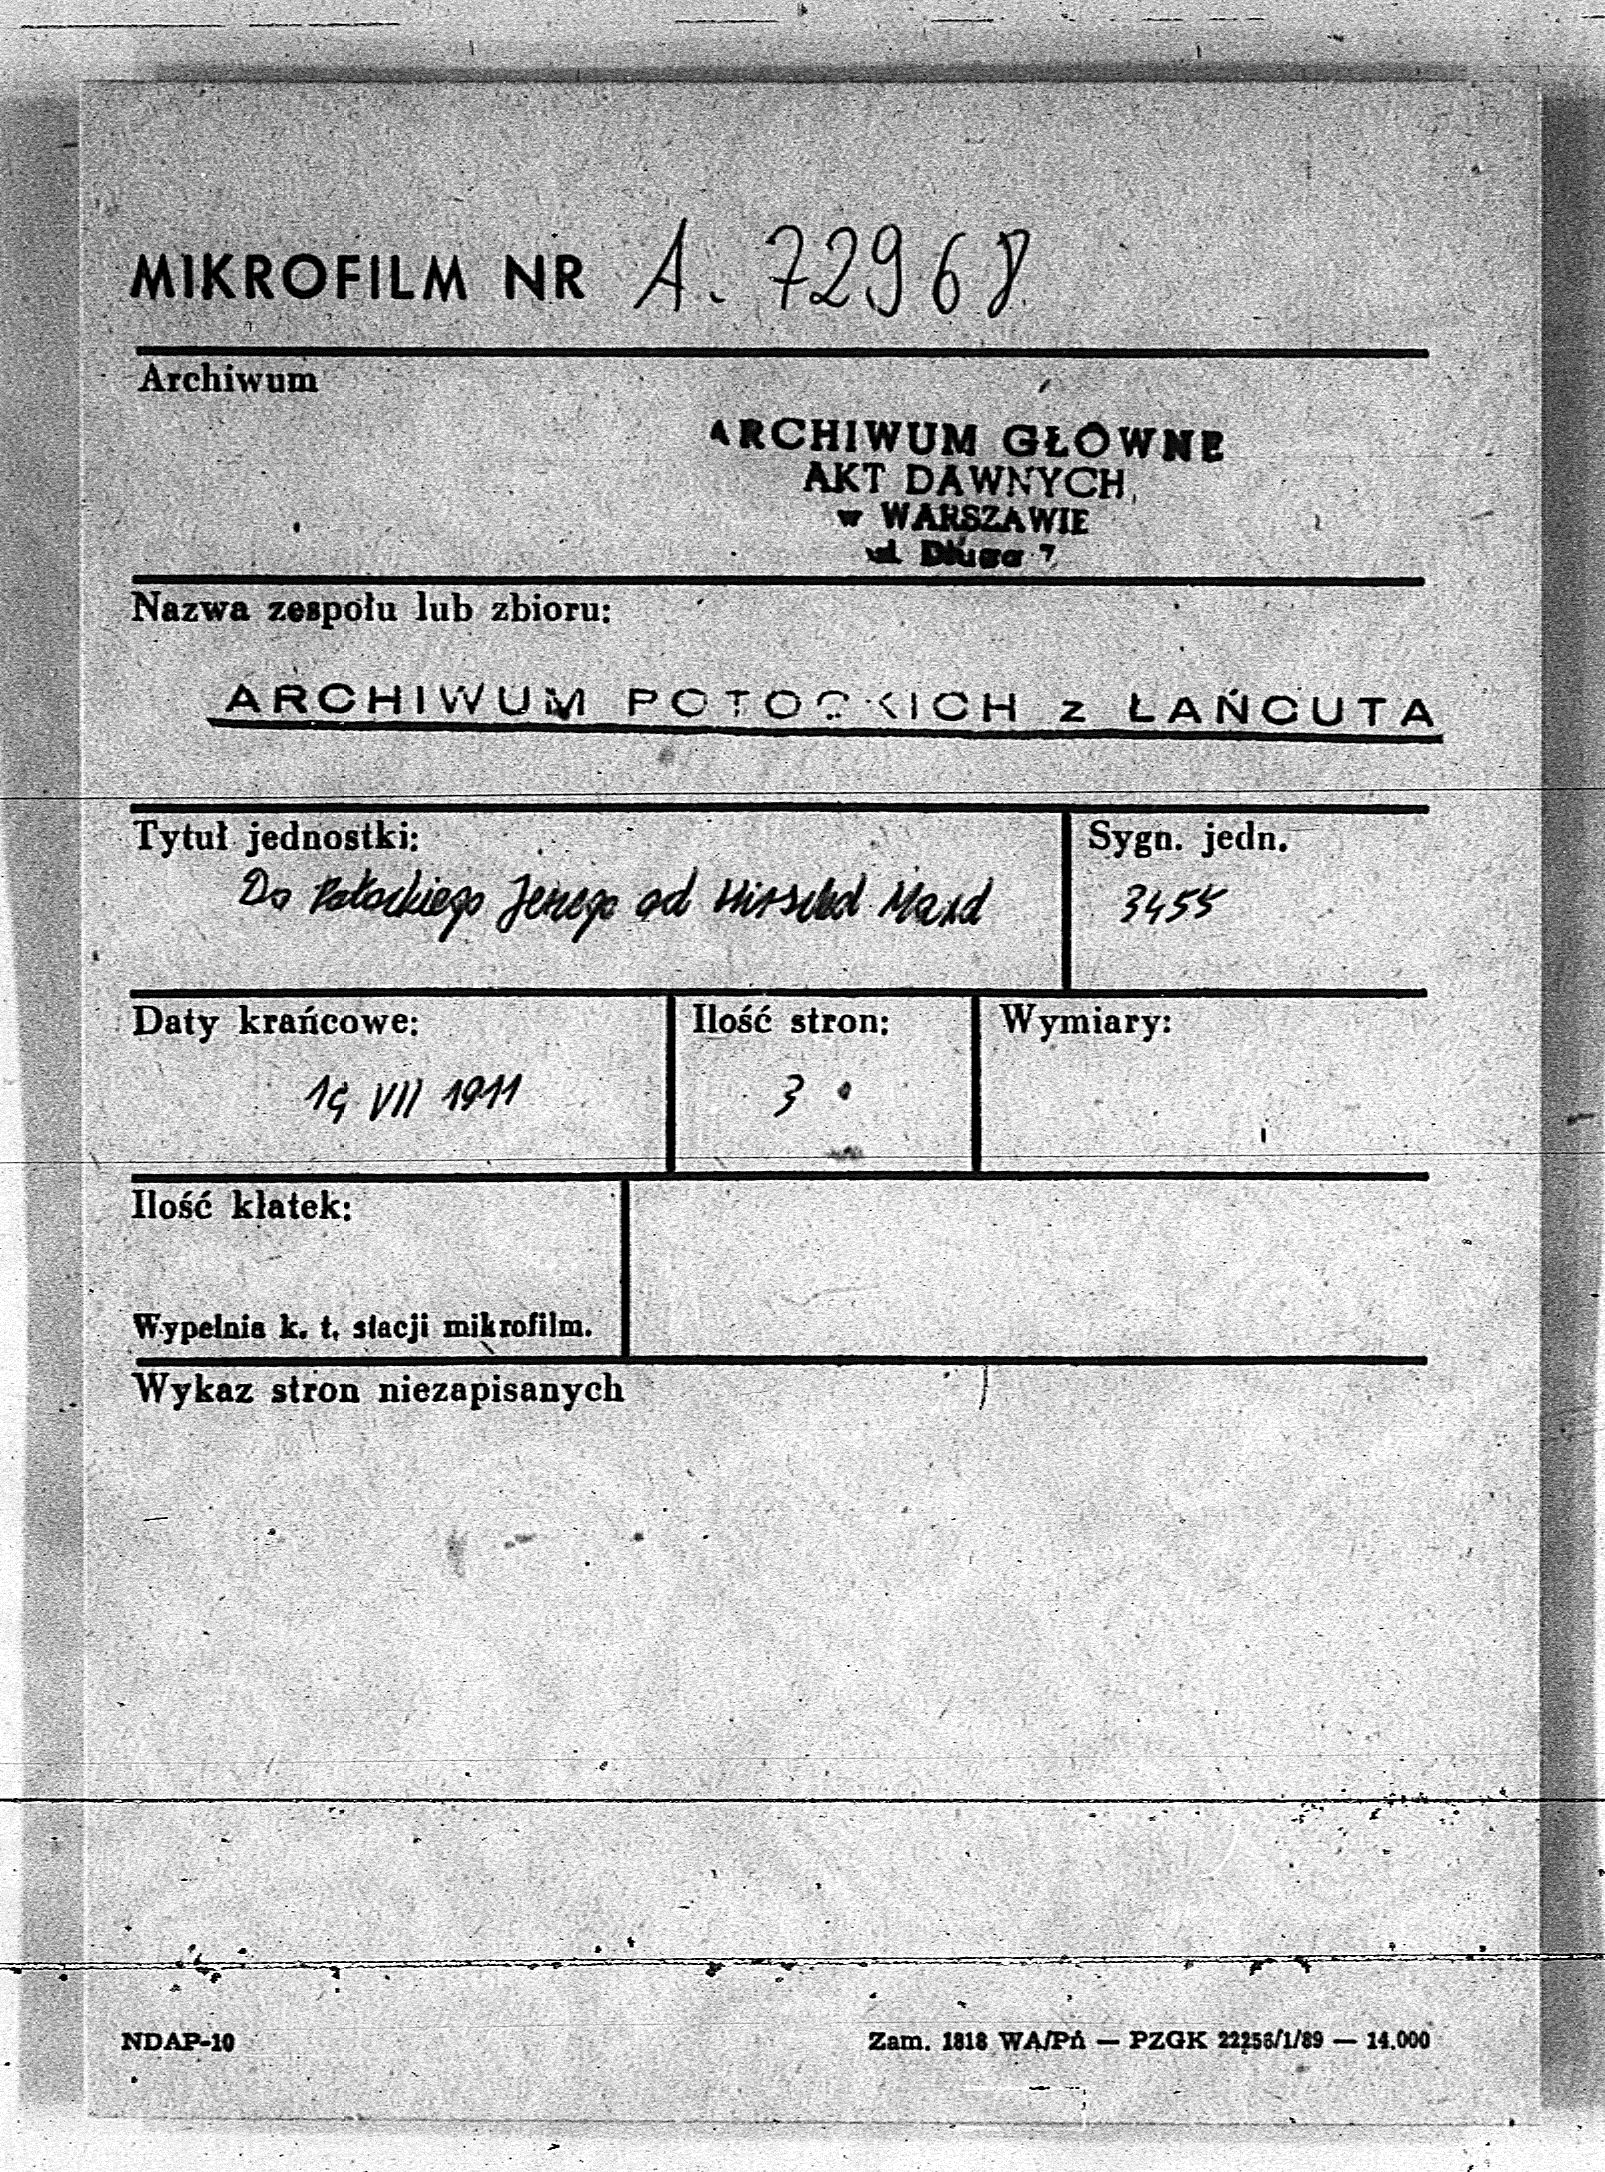 MIKROFILM NR A. 72968
Archiwum
ARCHIWUM GŁÓWNE
AKT DAWNYCH
w WARSZAWIE
ul. Długa 7
Nazwa zespołu lub zbioru:
ARCHIWUM POTOCKICH z ŁAŃCUTA
Tytuł jednostki:
Sygn. jedn.
Do Potockiego Jerzego od
3455
Daty krańcowe:
Ilość stron:
Wymiary:
VII 1911
3
Ilość klatek:
Wypełnia k. t. stacji mikrofilm.
Wykaz stron niezapisanych
NDAP-10
Zam. 1818 WA/Pń — PZGK 22256/1/89 — 14.000